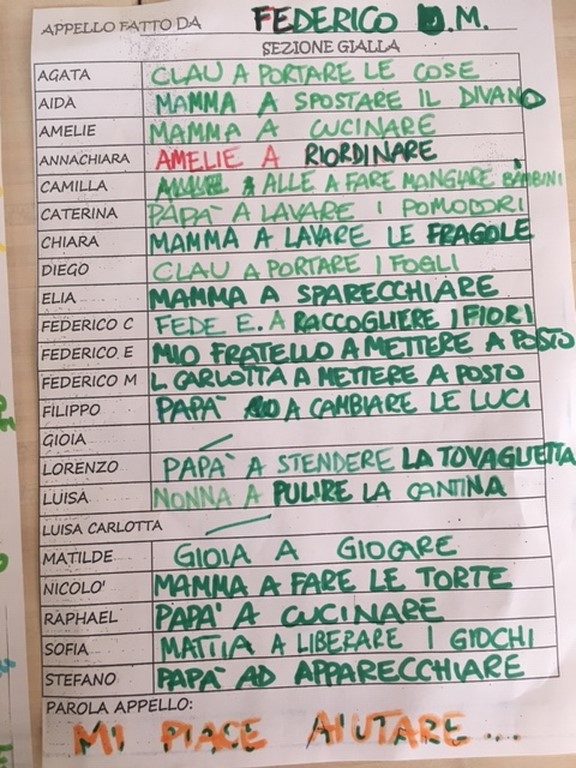 APPELLO FATTO DA FEDERICO D.M.
SEZIONE GIALLA
AGATA CLAU A PORTARE LE COSE
AIDA MAMMA A SPOSTARE IL DIVANO
AMELIE MAMMA A CUCINARE
ANNACHIARA AMELIE A RIORDINARE
CAMILLA ALLE A FARE MANGIARE BAMBINI
CATERINA PAPA' A LAVARE I POMODORI
CHIARA MAMMA A LAVARE LE FRAGOLE
DIEGO CLAU A PORTARE I FOGLI
ELIA MAMMA A SPARECCHIARE
FEDERICO C FEDE E. A RACCOGLIERE I FIORI
FEDERICO E MIO FRATELLO A METTERE A POSTO
FEDERICO M L CARLOTTA A METTERE A POSTO
FILIPPO PAPA' A CAMBIARE LE LUCI
GIOIA
LORENZO PAPA' A STENDERE LA TOVAGLIETTA
LUISA NONNA A PULIRE LA CANTINA
LUISA CARLOTTA
MATILDE GIOIA A GIOCARE
NICOLO' MAMMA A FARE LE TORTE
RAPHAEL PAPA' A CUCINARE
SOFIA MATTIA A LIBERARE I GIOCHI
STEFANO PAPA' AD APPARECCHIARE
PAROLA APPELLO:
MI PIACE AIUTARE...